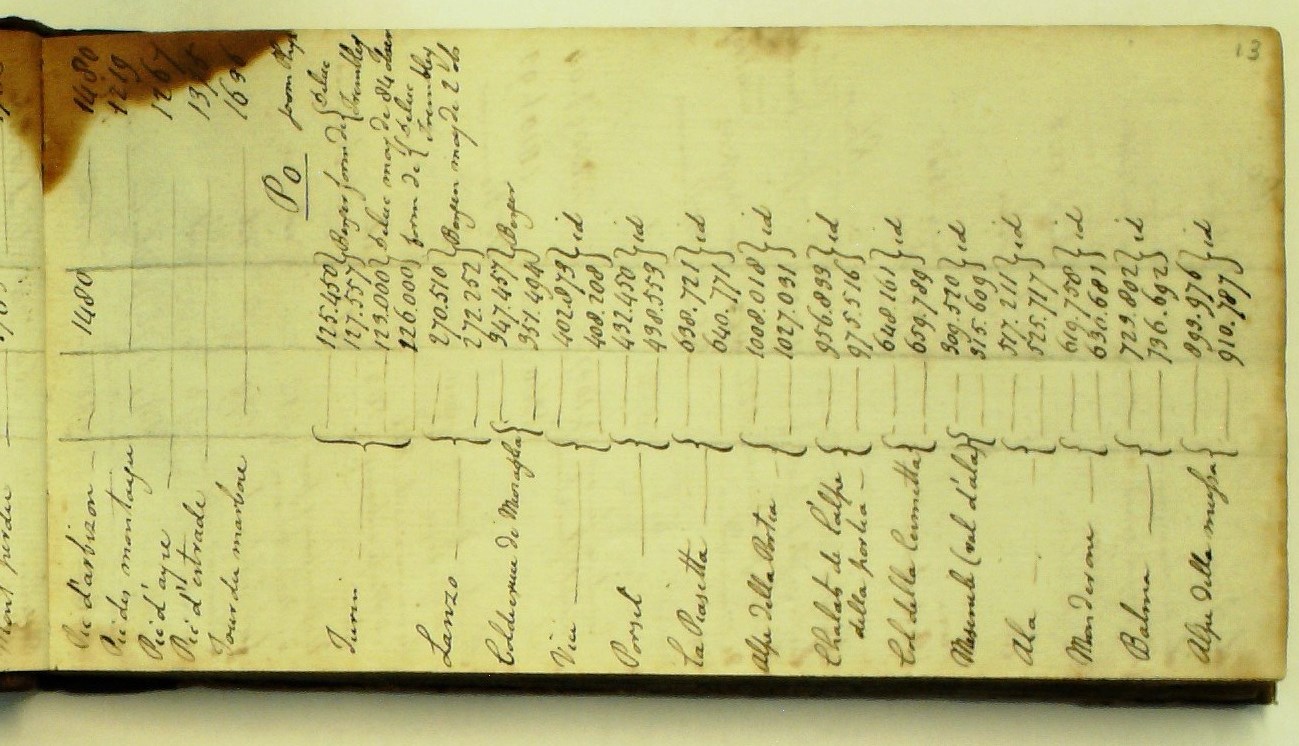 13
Pic d'arbizon — 1480 — 1480
Pic des montaigu — 1219
Pic d'ayre — 1267
Pic d'estrade
Tour du marbore — 1636
Po
Turin { — 125.450 } Berger form de { Deluc
— 127.557 } Trembley
— 123.000 } Deluc moy de 84 obser
— 126.000 } form de { Deluc
Trembley
Lanzo { — 270.510 } Berger moy de 2 ob
— 272.252
{ — 347.457 } Berger
— 351.494
Viu { — 402.879 } id
— 408.208
{ — 432.450 } id
— 438.559
La Piasetta { — 638.721 } id
— 640.771
Alpe della Portia { — 1008.018 } id
— 1027.031
Chalats de l'alpe { — 956.833 } id
della portia — 975.516
Col della Cumetta { — 648.161 } id
— 659.789
(val d'ala) { — 309.520 } id
— 315.609
Ala { — 517.211 } id
— 525.717
Mondrone { — 619.738 } id
— 630.681
Balma { — 723.802 } id
— 736.692
Alpe della mussa { — 893.976 } id
— 910.787